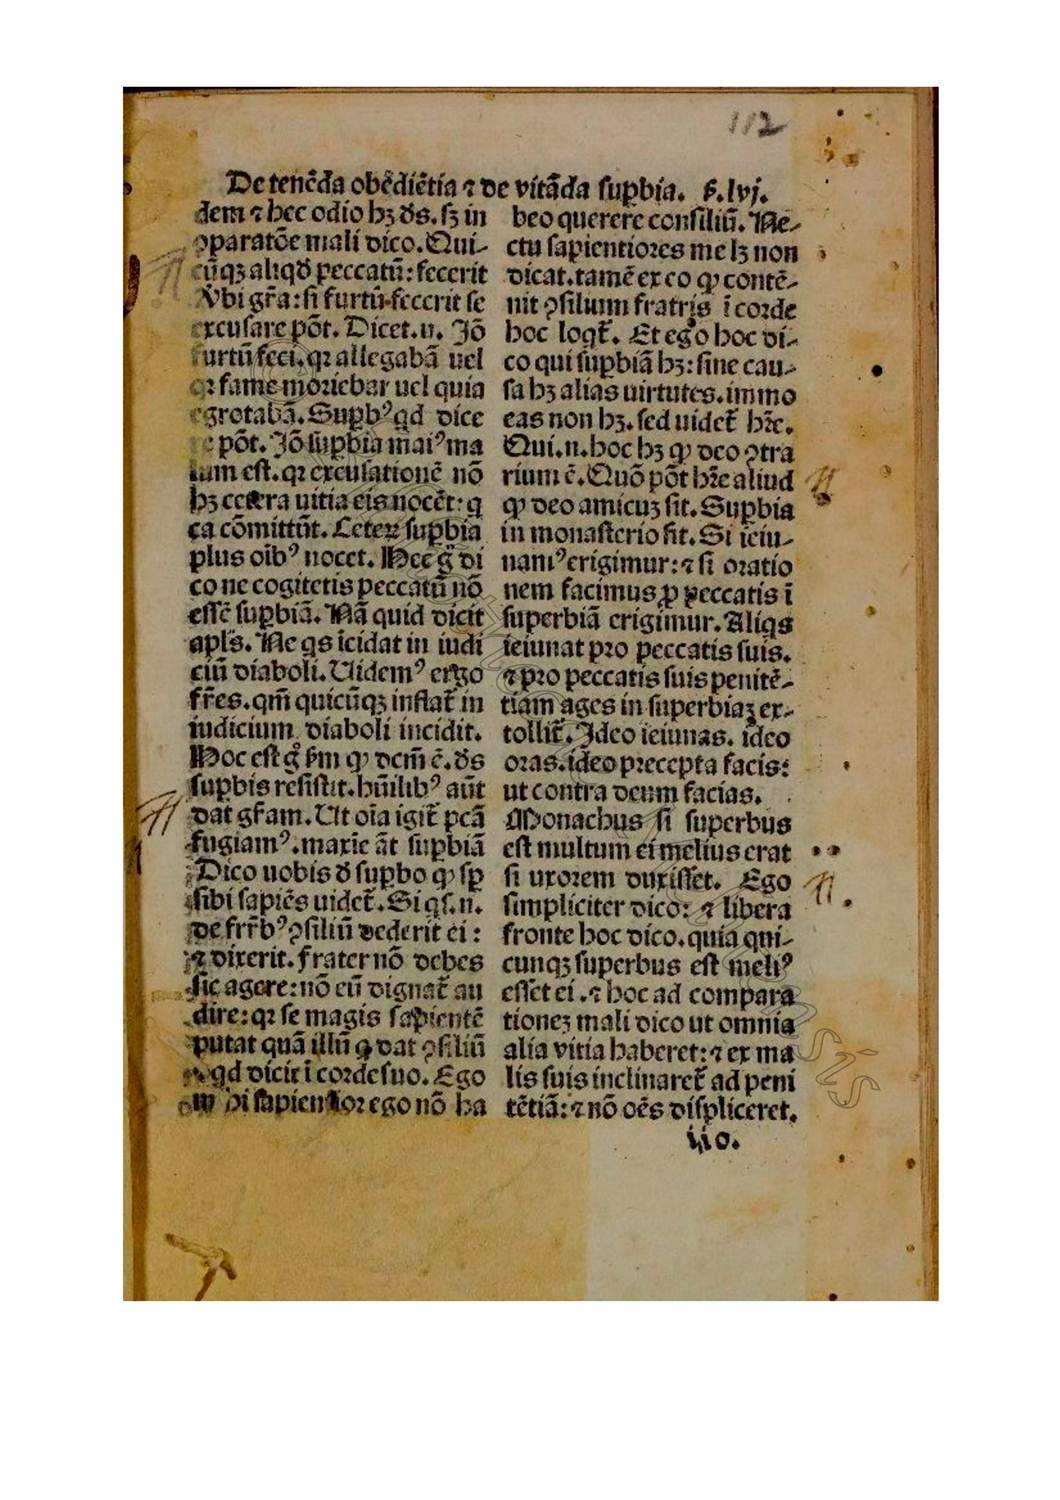 112
De tenēda obediētia ⁊ de vitāda suꝑbia. ß.lvj.
dem ⁊ hec odio hꝫ d̄s. sꝫ in
ꝯparatōe mali dico. Qui-
cūqꝫ aliqd̄ peccatū: fecerit
Vbi gr̄a: si furtū fecerit se
excusare pōt. Dicet. n. Iō
furtū feci. qꝛ allegabā uel
qꝛ fame moriebar uel quia
egrotabā. Suꝑbꝰ qd dice
re pōt. Iō suꝑbia maiꝰ ma
lum est. qꝛ excusationē nō
hꝫ cetera uitia eis nocēt: q
ea cōmittūt. Ceteꝝ suꝑbia
plus oībꝰ nocet. Hec g̊ di
co ne cogitetis peccatū nō
esse suꝑbiā. Nā quid dicit
apl̄s. Ne qs īcidat in iudi
ciū diaboli. Uidemꝰ ergo
fr̄es. qm̄ quicūqꝫ inflat̄ in
iudicium diaboli incidit.
Hoc est g̊ ẜm ꝙ dcm̄ ē. d̄s
suꝑbis resistit. hūilibꝰ aūt
dat gr̄am. Ut oīa igit̄ pcā
fugiamꝰ. maxīe āt suꝑbiā
Dico uobis d̄ suꝑbo ꝙ sꝑ
sibi sapiēs uidet̄. Si qs. n.
de fr̄ibꝰ ꝯsiliū dederit ei:
⁊ dixerit. frater nō debes
sic agere: nō eū dignat̄ au
dire: qꝛ se magis sapientē
putat quā illū q dat ꝯsiliū
qd dicit ī corde suo. Ego
bi sapientior ego nō ha
beo querere consiliū. Ne-
ctu sapientiores me lꝫ non
dicat. tamē ex eo ꝙ contē-
nit ꝯsilium fratris ī corde
hoc loqt̄. Et ego hoc di-
co qui suꝑbiā hꝫ: sine cau-
sa hꝫ alias uirtutes. immo
eas non hꝫ. sed uidet̄ hr̄e.
Qui. n. hoc hꝫ ꝙ deo ꝯtra
rium ē. Quō pōt hr̄e aliud
ꝙ deo amicuꝫ sit. Suꝑbia
in monasterio sit. Si ieiu-
namꝰ erigimur: ⁊ si oratio
nem facimus ꝓ peccatis ī
superbiā erigimur. Aliqs
ieiunat pro peccatis suis.
⁊ pro peccatis suis penitē-
tiam ages in superbiaꝫ ex-
tollit̄. Ideo ieiunas. ideo
oras. ideo precepta facis:
ut contra deum facias.
Monachus si superbus
est multum ei melius erat
si uxorem duxisset. Ego
simpliciter dico: ⁊ libera
fronte hoc dico. quia qui-
cunqꝫ superbus est meliꝰ
esset ei. ⁊ hoc ad compara
tioneꝫ mali dico ut omnia
alia vitia haberet: ⁊ ex ma
lis suis inclinaret̄ ad peni
tētiā: ⁊ nō oēs displiceret.
iio.